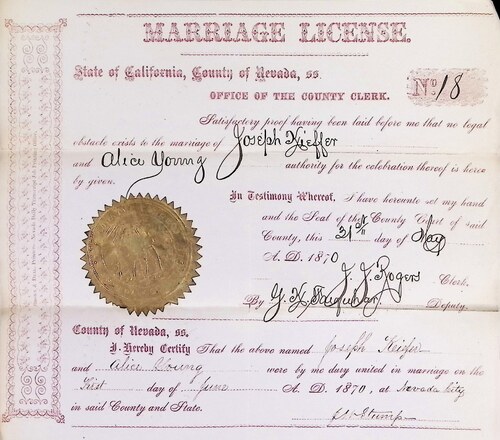 MARRIAGE LICENSE.
State of California, County of Nevada, ss.
No 18
OFFICE OF THE COUNTY CLERK.
Satisfactory proof having been laid before me that no legal
obstacle exists to the marriage of Joseph Kieffer
and Alice Young authority for the celebration thereof is here
by given.
In Testimony Whereof, I have hereunto set my hand
and the Seal of the County Court of said
County, this 31st day of May
A. D. 1870
J. J. Rogers Clerk.
By G. K. Farquhar Deputy.
County of Nevada, ss.
I Hereby Certify That the above named Joseph Keifer
and Alice Young were by me duly united in marriage on the
First day of June A. D. 1870, at Nevada City
in said County and State.
Stump